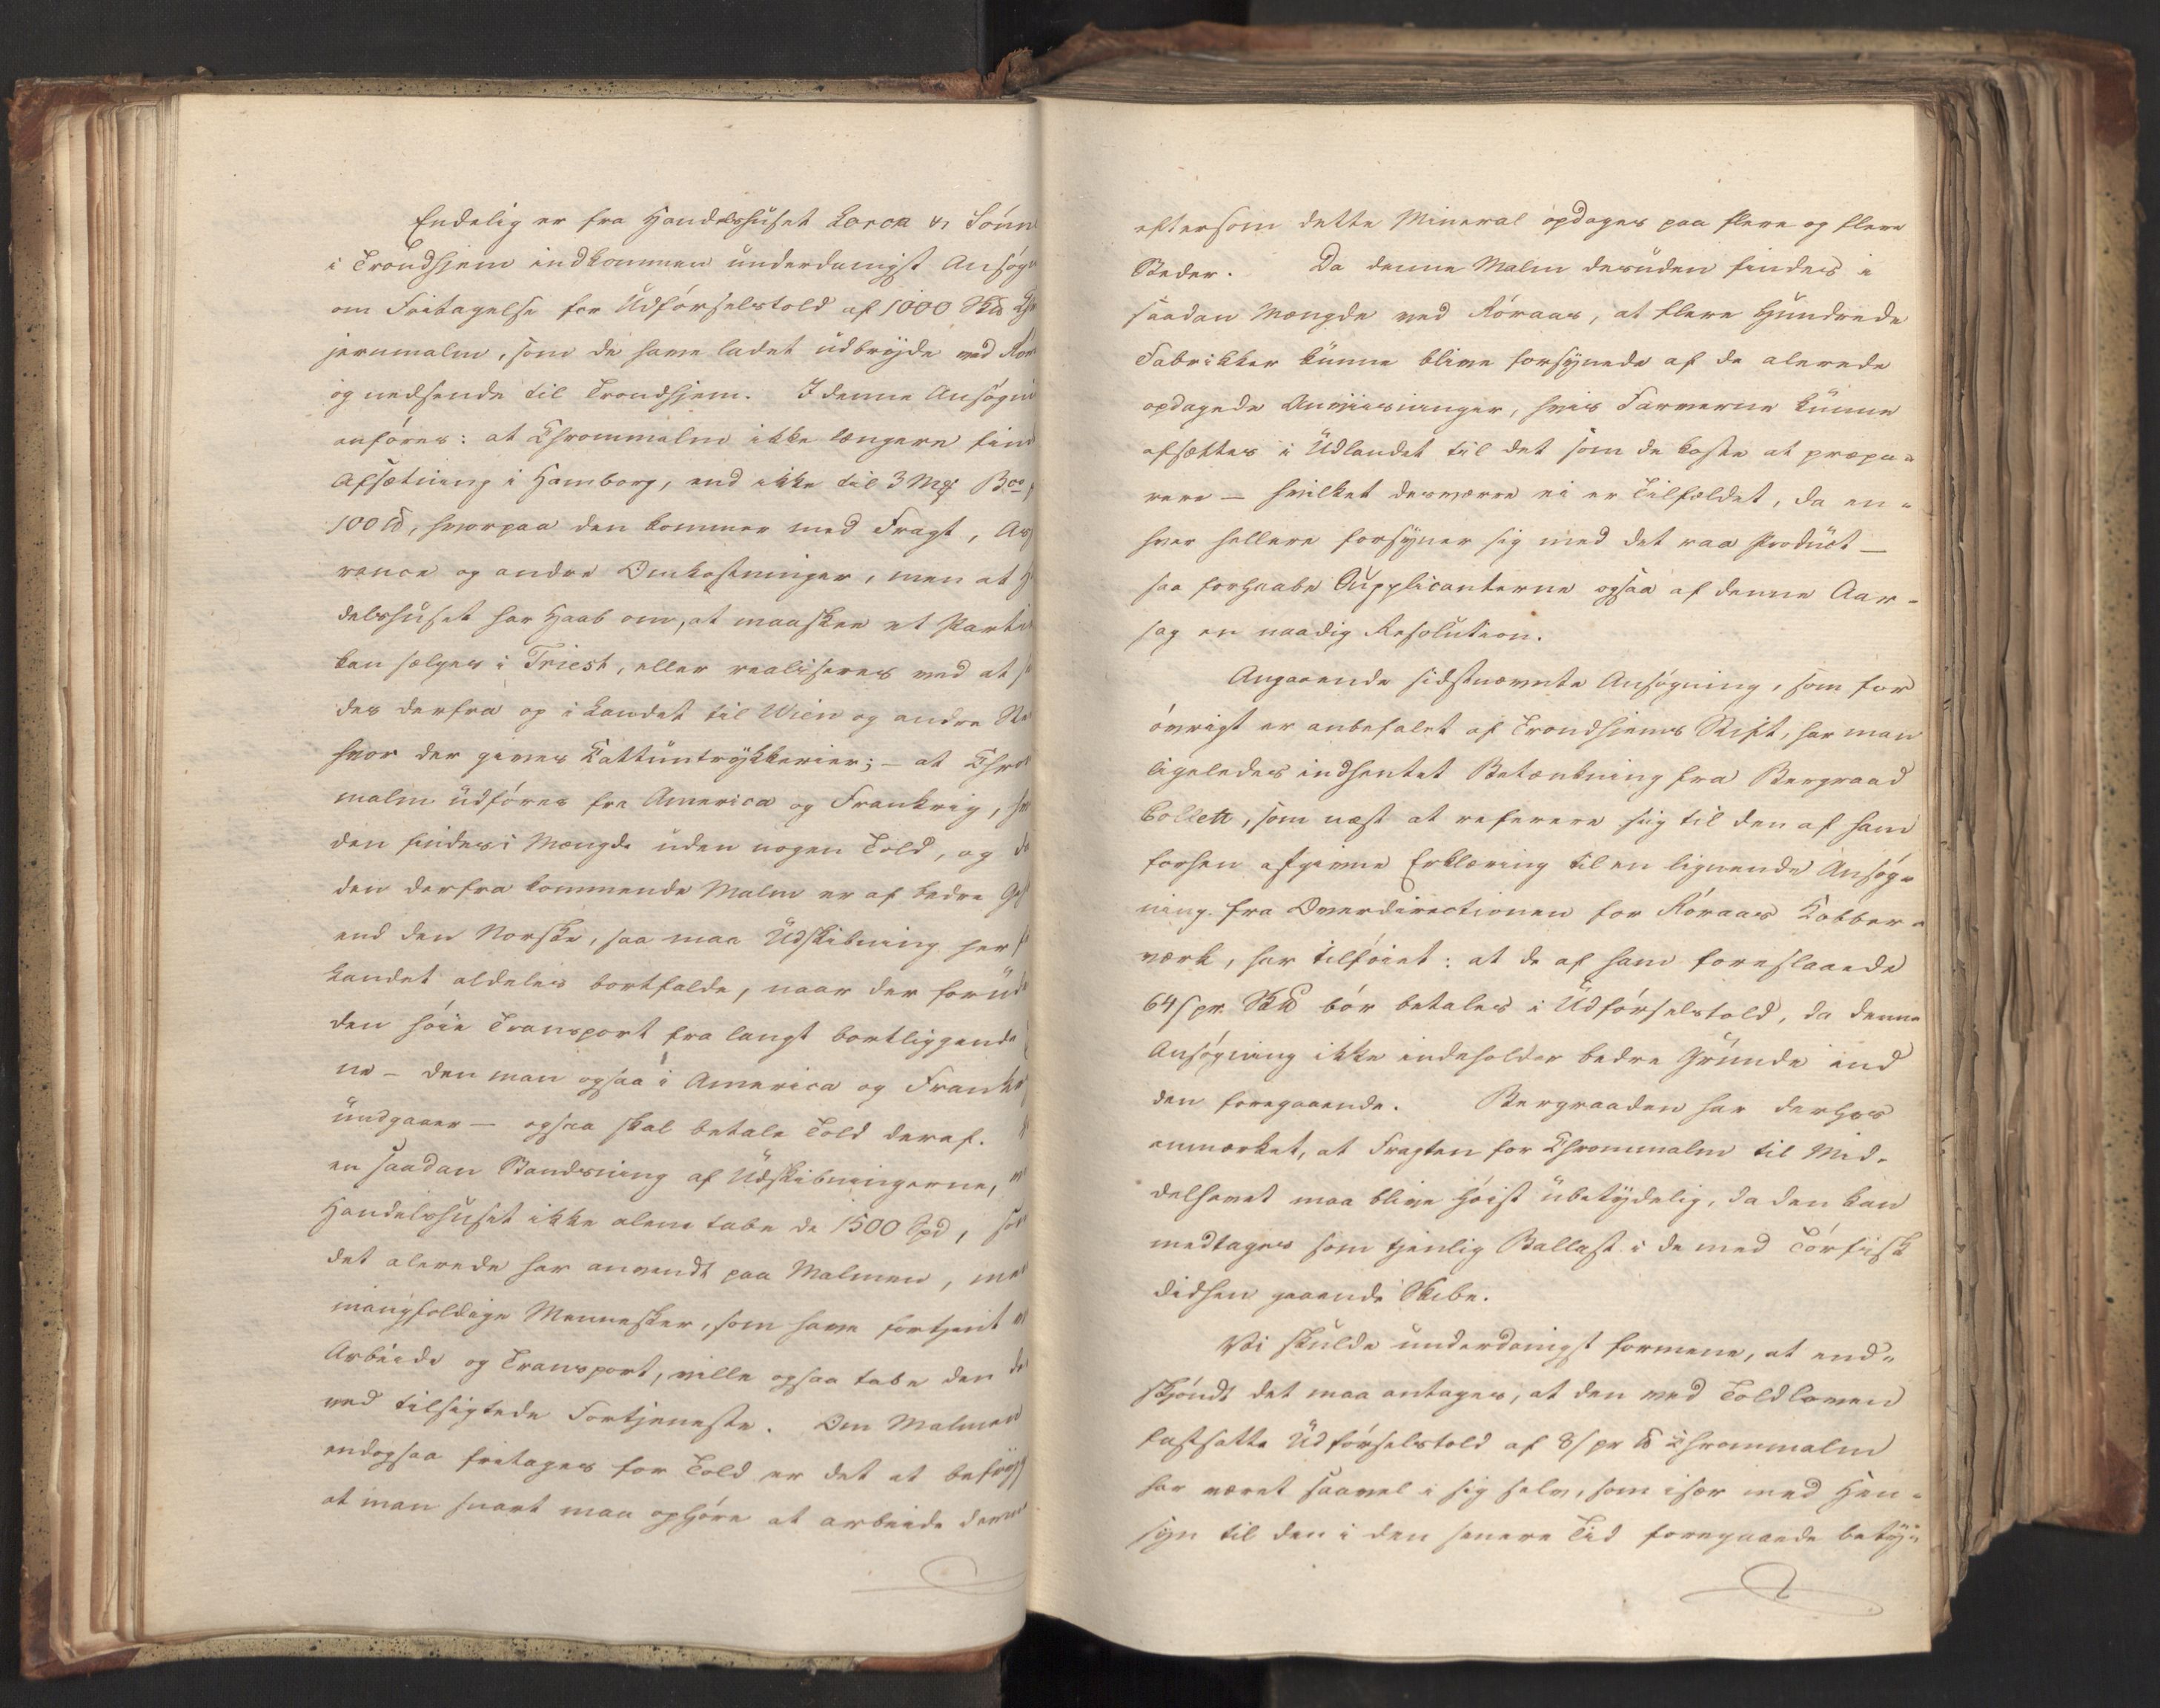 Endelig er fra Handelshuset Lorck & Sönn
i Trondhjem indkommen underdanigst Ansøgn
om Fritagelse for Udförselstold af 1000 Sk℔ Chr
jernmalm, som de have ladet udbryde ved Rör
og nedsende til Trondhjem. I denne Ansøgni
anföres: at Chrommalm ikke længere find
Afsætning i Hamborg, end ikke til 3 Mk Bco
100 ℔, hvorpaa den kommer med Fragt, As
rance og andre Omkostninger, men at H
delshuset har Haab om, at maaskee et Parti
kan sælges i Triest, eller realiseres ved at s
des derfra op i Landet til Wien og andre Ste
hvor der gives Cattuntrykkerier; – at Chro
malm udföres fra America og Frankrig, hv
den findes i Mængde uden nogen Told, og d
den derfra kommende Malm er af bedre Geh
end den Norske, saa maa Udskibning her f
Landet aldeles bortfalde, naar der forud
den höie Transport fra langt bortliggende
ne – den man ogsaa i America og Frankr
undgaaer – ogsaa skal betale Told deraf.
en saadan Standsning af Udskibningerne,
Handelshuset ikke alene tabe de 1500 Spd, som
det alerede har anvendt paa Malmen, men
mangfoldige Mennesker, som have fortjent
Arbeide og Transport, ville ogsaa tabe den
ved tilsigtede Fortjeneste. Om Malmen
endogsaa fritages for Told er det at befryg
at man snart maa ophöre at arbeide der
eftersom dette Mineral opdages paa flere og flere
Steder. Da denne Malm desuden findes i
saadan Mængde ved Röraas, at flere Hundrede
Fabrikker kunne blive forsynede af de alerede
opdagede Anviisninger, hvis Farverne kunne
afsættes i Udlandet til det som de koste at præpa-
rere – hvilket desværre ei er Tilfældet, da en-
hver hellere forsyner sig med det raa Product –
saa forhaabe Supplicanterne ogsaa af denne Aar-
sag en naadig Resolution.
Angaaende sidstnævnte Ansögning, som for
övrigt er anbefalet af Trondhjems Stift, har man
ligeledes indhentet Betænkning fra Bergraad
Collett, som næst at referere sig til den af ham
forhen afgivne Erklæring til en lignende Ansög-
ning fra Overdirectionen for Röraas Kobber-
værk, har tilföiet: at de af ham foreslaaede
64 s pr. Sk℔ bör betales i Udförselstold, da denne
Ansögning ikke indeholder bedre Grunde end
den foregaaende. Bergraaden har derhos
anmærket, at Fragten for Chrommalm til Mid-
delhavet maa blive höist übetydelig, da den kan
medtages som tjenlig Ballast i de med Törfisk
didhen gaaende Skibe.
Vi skulde underdanigst formene, at end-
skjöndt det maa antages, at den ved Toldloven
fastsatte Udförselstold af 8 s pr ℔ Chrommalm
har været saavel i sig selv, som især med Hen-
syn til den i den senere Tid foregaaede bety-